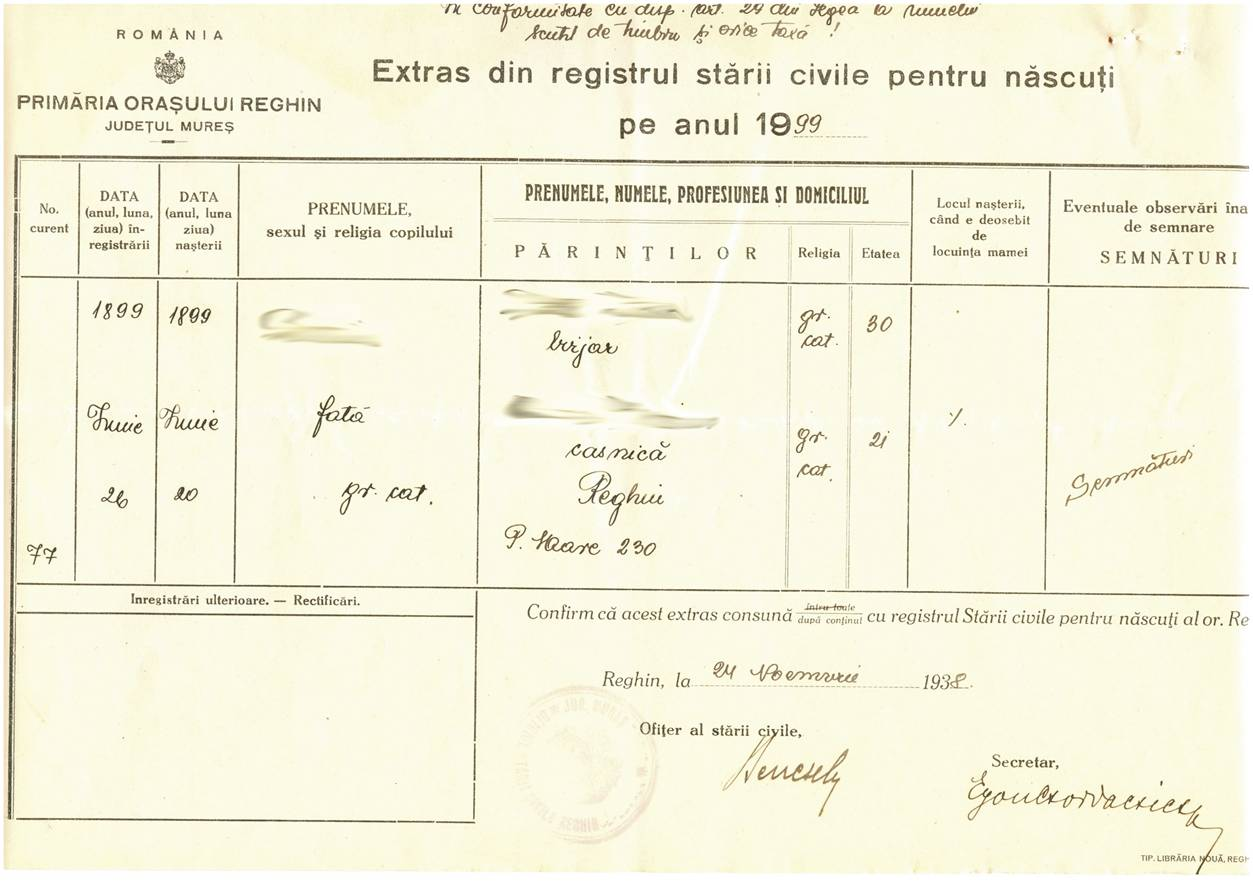 În conformitate cu disp. art. 24 din legea la numelui
scutit de timbru și orice taxă !
ROMÂNIA
PRIMĂRIA ORAȘULUI REGHIN
JUDEȚUL MUREȘ
Extras din registrul stării civile pentru născuți
pe anul 1999
No.
curent
DATA
(anul, luna,
ziua) în-
registrării
DATA
(anul, luna
ziua)
nașterii
PRENUMELE,
sexul și religia copilului
PRENUMELE, NUMELE, PROFESIUNEA ȘI DOMICILIUL
PĂRINȚILOR
Religia
Etatea
Locul nașterii,
când e deosebit
de
locuința mamei
Eventuale observări îna
de semnare
SEMNĂTURI
77
1899
Iunie
26
1899
Iunie
20
fată
gr. cat.
casnică
Reghin
P. Mare 230
gr.
cat.
gr.
cat.
30
21
٪
Semnături
Inregistrări ulterioare. — Rectificări.
Confirm că acest extras consună întru toate
după conținut cu registrul Stării civile pentru născuți al or. Re
Reghin, la 24 Noemvrie 1938.
Ofițer al stării civile,
Secretar,
TIP. LIBRĂRIA NOUĂ, REGH